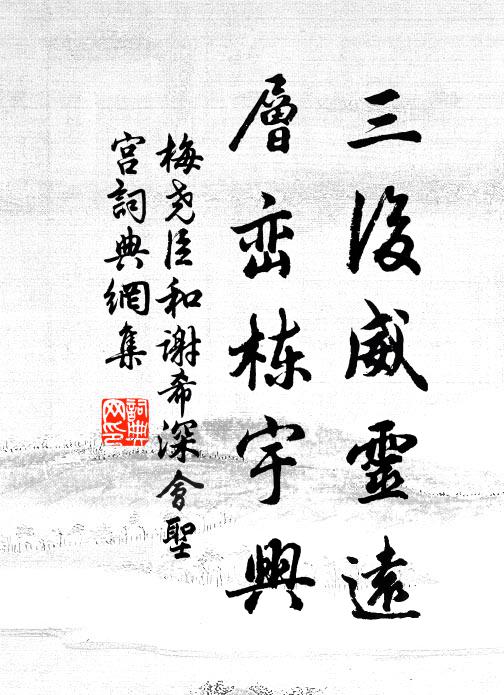 三後威靈遠
層峦栋宇興
梅尭臣和谢希深會聖
宫詞典網集
詞典網印